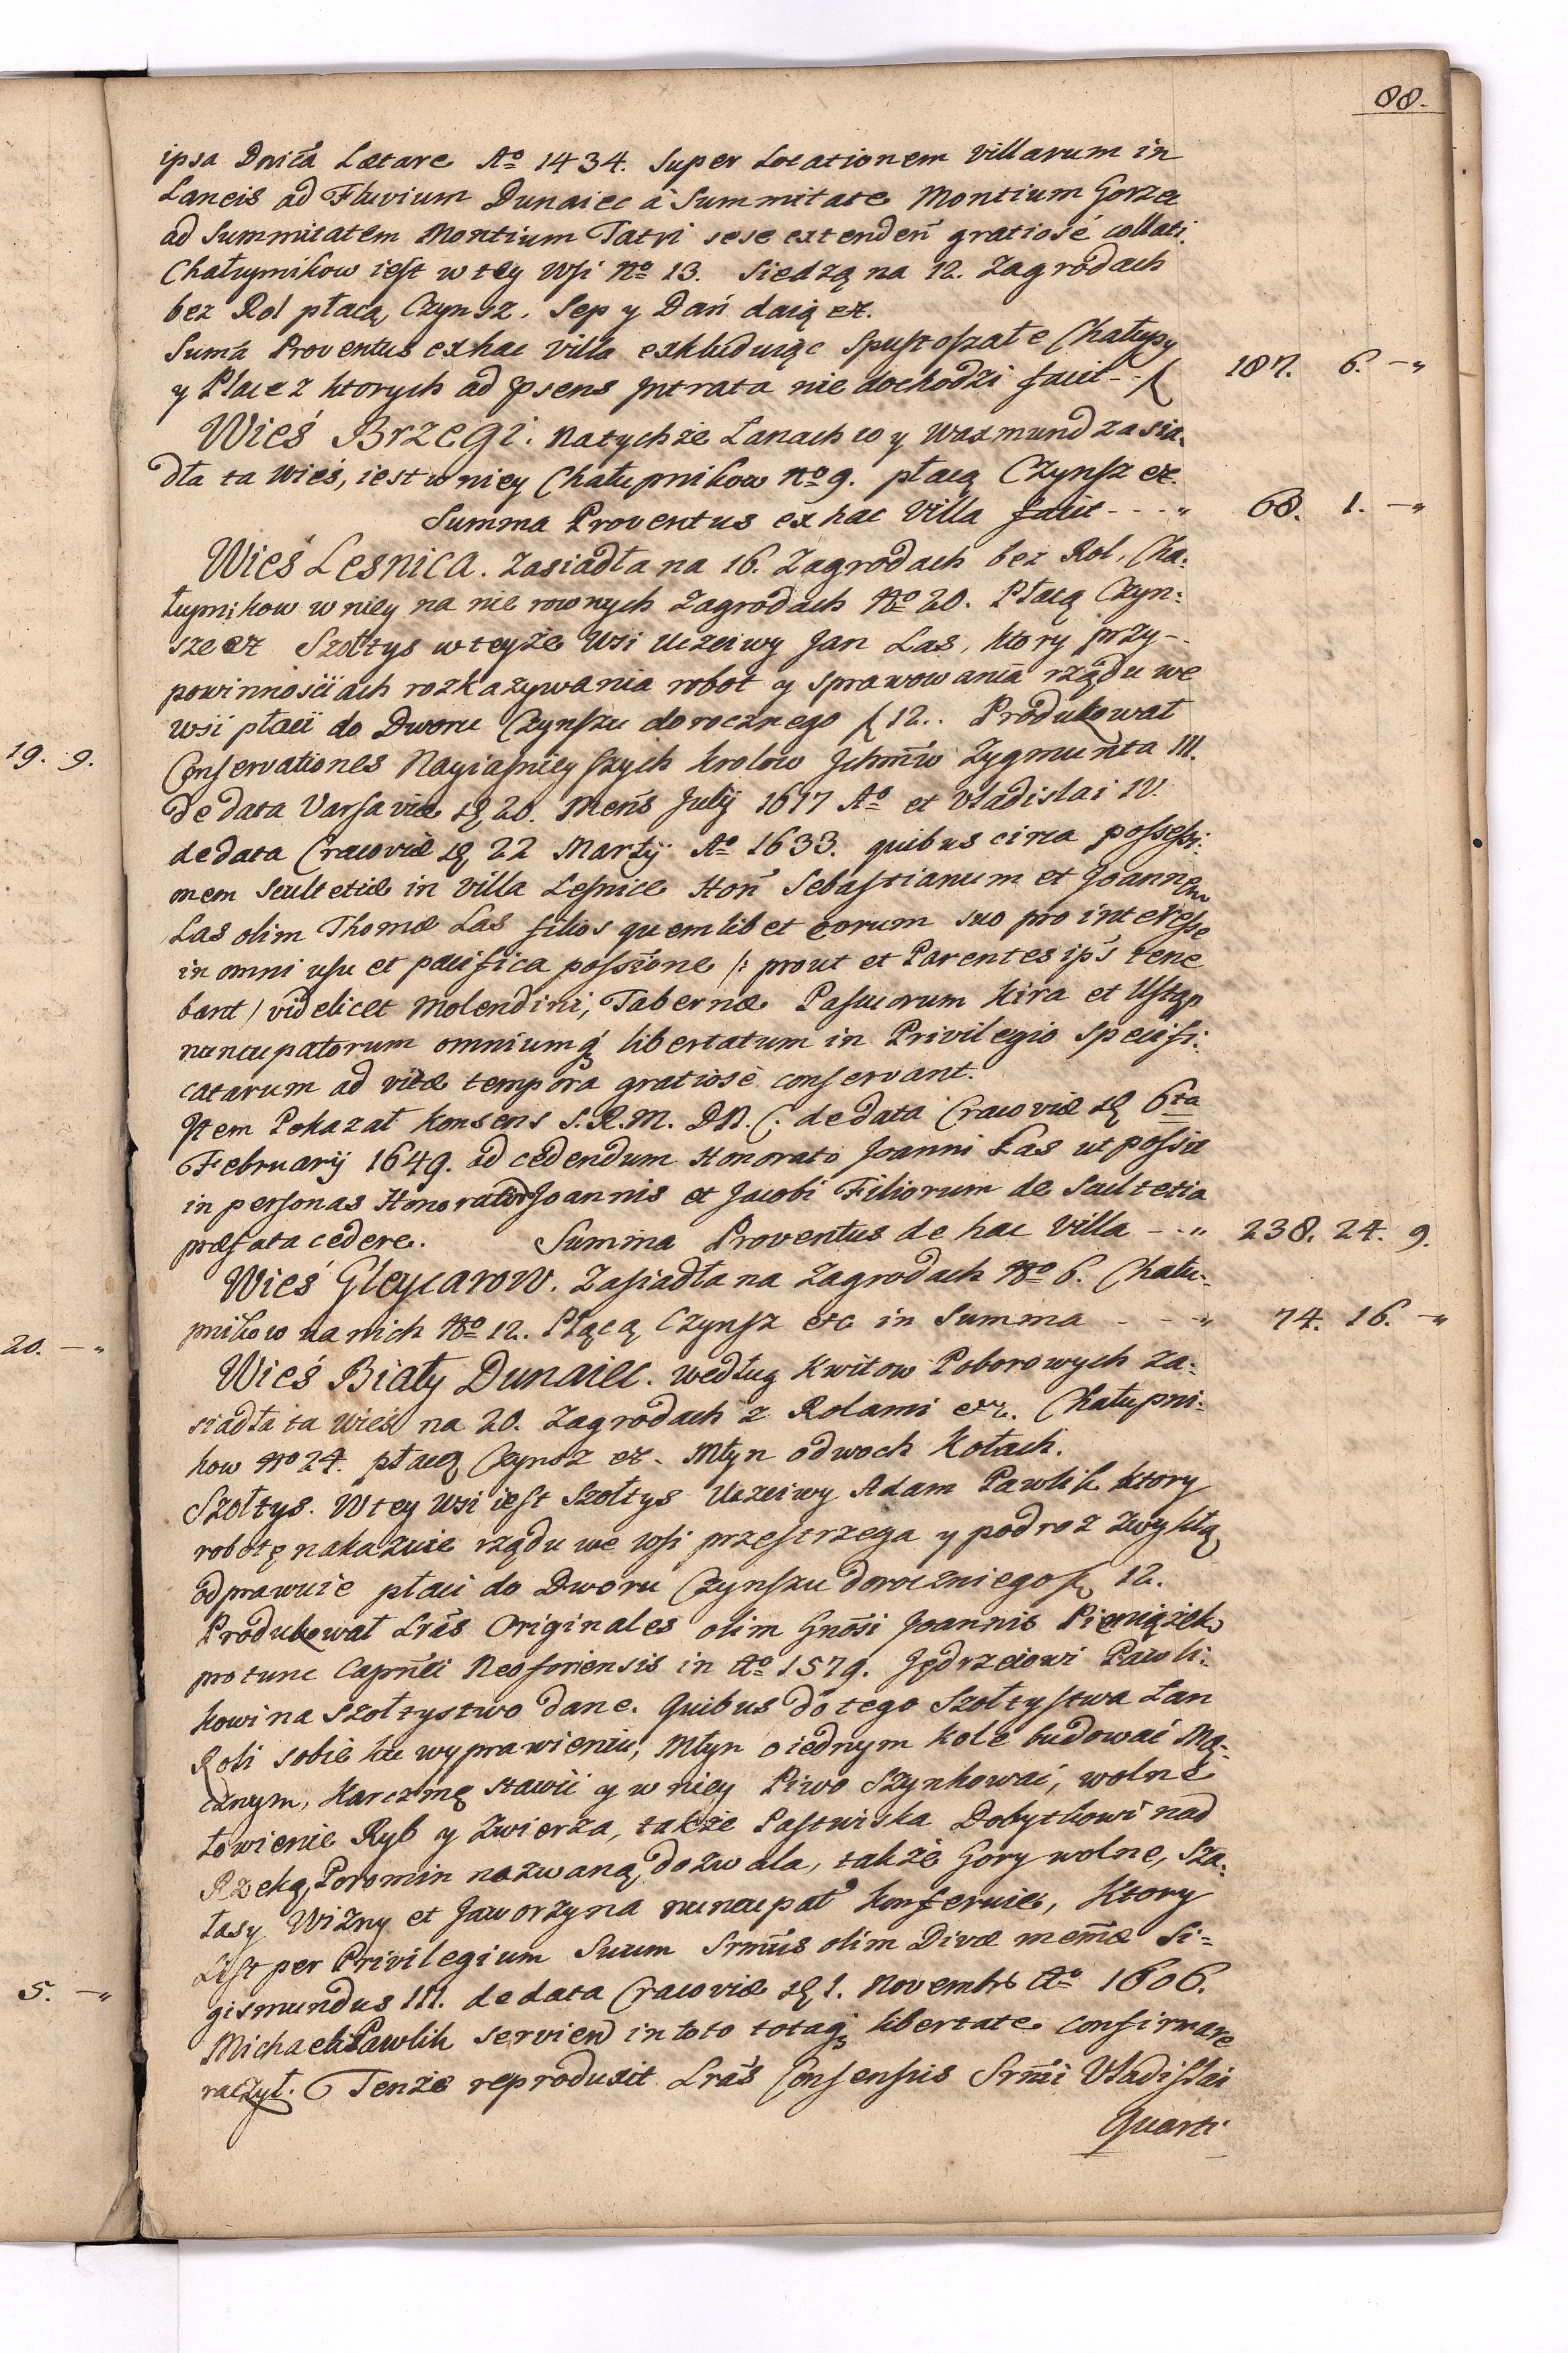 88.
ipsa Dnicâ Lætare Aº 1434. Super Locationem Villarum in
Laneis ad Fluvium Dunaiec à Summitate Montium Gorze
ad Summitatem Montium Tatri sese extendeñ gratiosé collati.
Chałupnikow iest w tey Wsi Nº 13. Siedzą na 12. Zagrodach
bez Rol płacą Czynsz, Sep y Dań daią etz.
Summa Proventus ex hac Villa exkluduiąc Spustoszałe Chałupy
y Place z ktorych ad psens Jntrata nie dochodzi facit -- f 187. 6. -"
Wieś Brzegi. Na tychże Łanach co y Waxmund zasia.
dła ta Wieś, iest w niey Chałupnikow Nº 9. płacą Czynsz etz.
Summa Proventus ex hac Villa facit - - - " 68. 1. -"
Wieś Lesnica. Zasiadła na 16. Zagrodach bez Rol, Cha:
łupnikow w niey na nie rownych Zagrodach Nº 20. Płacą Czyn:
sze etz Szołtys w teyże Wsi Uczciwy Jan Las, ktory przy--
powinnościach rozkazywania robot y sprawowania rządu we
wsi płaci do Dworu Czynszu dorocznego f 12.. Produkował
Conservationes Nayiasnieyszych Krolow Jchm̃w Zygmunta III.
de data Varsaviæ dς 20. Meñs Julÿ 1617 Aº et Vladislai IV.
de data Cracoviæ dς 22 Martÿ Aº 1633. quibus circa possessi:
onem Scultetiæ in Villa Lesnice Hoñ Sebastianum et Joannem
Las olim Thomæ Las filios quemlibet eorum suo pro interesse
in omni usu et pacifica possĩone /: prout et Parentes ips̃ tene
bant / videlicet Molendini, Tabernæ Pascuorum Kira et Ustęp
nuncupatorum omniumq́ libertatum in Privilegio Specifi:
catarum ad vitæ tempora gratiosè conservant.
Jtem Pokazał Konsens S.R.M. DN. C: de data Cracoviæ dς 6ta
Februarÿ 1649. ad cedendum Honorato Joanni Las ut possit
in personas Honorator Joannis et Jacobi Filiorum de Scultetia
præfata cedere. Summa Proventus de hac Villa - .. " 238. 24. 9.
Wieś Gleycarow. Zasiadła na Zagrodach Nº 6. Chału:
pnikow na nich Nº 12. Płącą Czynsz etc in Summa - - - " 74. 16. -"
Wieś Biały Dunaiec. według Kwitow Poborowych Za:
siadła ta Wieś na 20. Zagrodach z Rolami etz. Chałupni:
kow Nº 24. płacą Czynsz etz. Młyn o dwoch Kołach.
Szołtys. W tey Wsi iest Szołtys Uczciwy Adam Pawlik ktory
robotę nakazuie rządu we Wsi przestrzega y podroż zwykłą
odprawuie płaci do Dworu Czynszu doroczniego f 12.
Produkował Lrãs Originales olim Gnõsi Joannis Pieniążek
pro tunc Caprñei Neoforiensis in Aº 1579. Jędrzeiowi Pawli:
kowi na Szołtystwo dane. Quibus do tego Szołtystwa Łan
Roli sobie ku wyprawieniu, Młyn o iednym Kole budować Mą:
cznym, Karczmę stawić y w niey Piwo Szynkować, wolne
łowienie Ryb y Zwierza, także Pastwiska Dobytkowi nad
Rzeką Poromin nazwaną dozwala, także Gory wolne, Sza:
łasy Wizny et Jaworzyna nuncupat̃ konferuie, Ktory
List per Privilegium Suum Srm̃us olim Divæ mem̃æ Si=
gismundus III. de data Cracoviæ dς 1. Novembr̃ Aº 1606.
Michaeli Pawlik servieñ in toto totaq́ libertate confirmare
raczył. Tenże reproduxit Lrãs Consensus Srm̃i Vladislai
Quarti
19. 9.
20. - "
5. - "